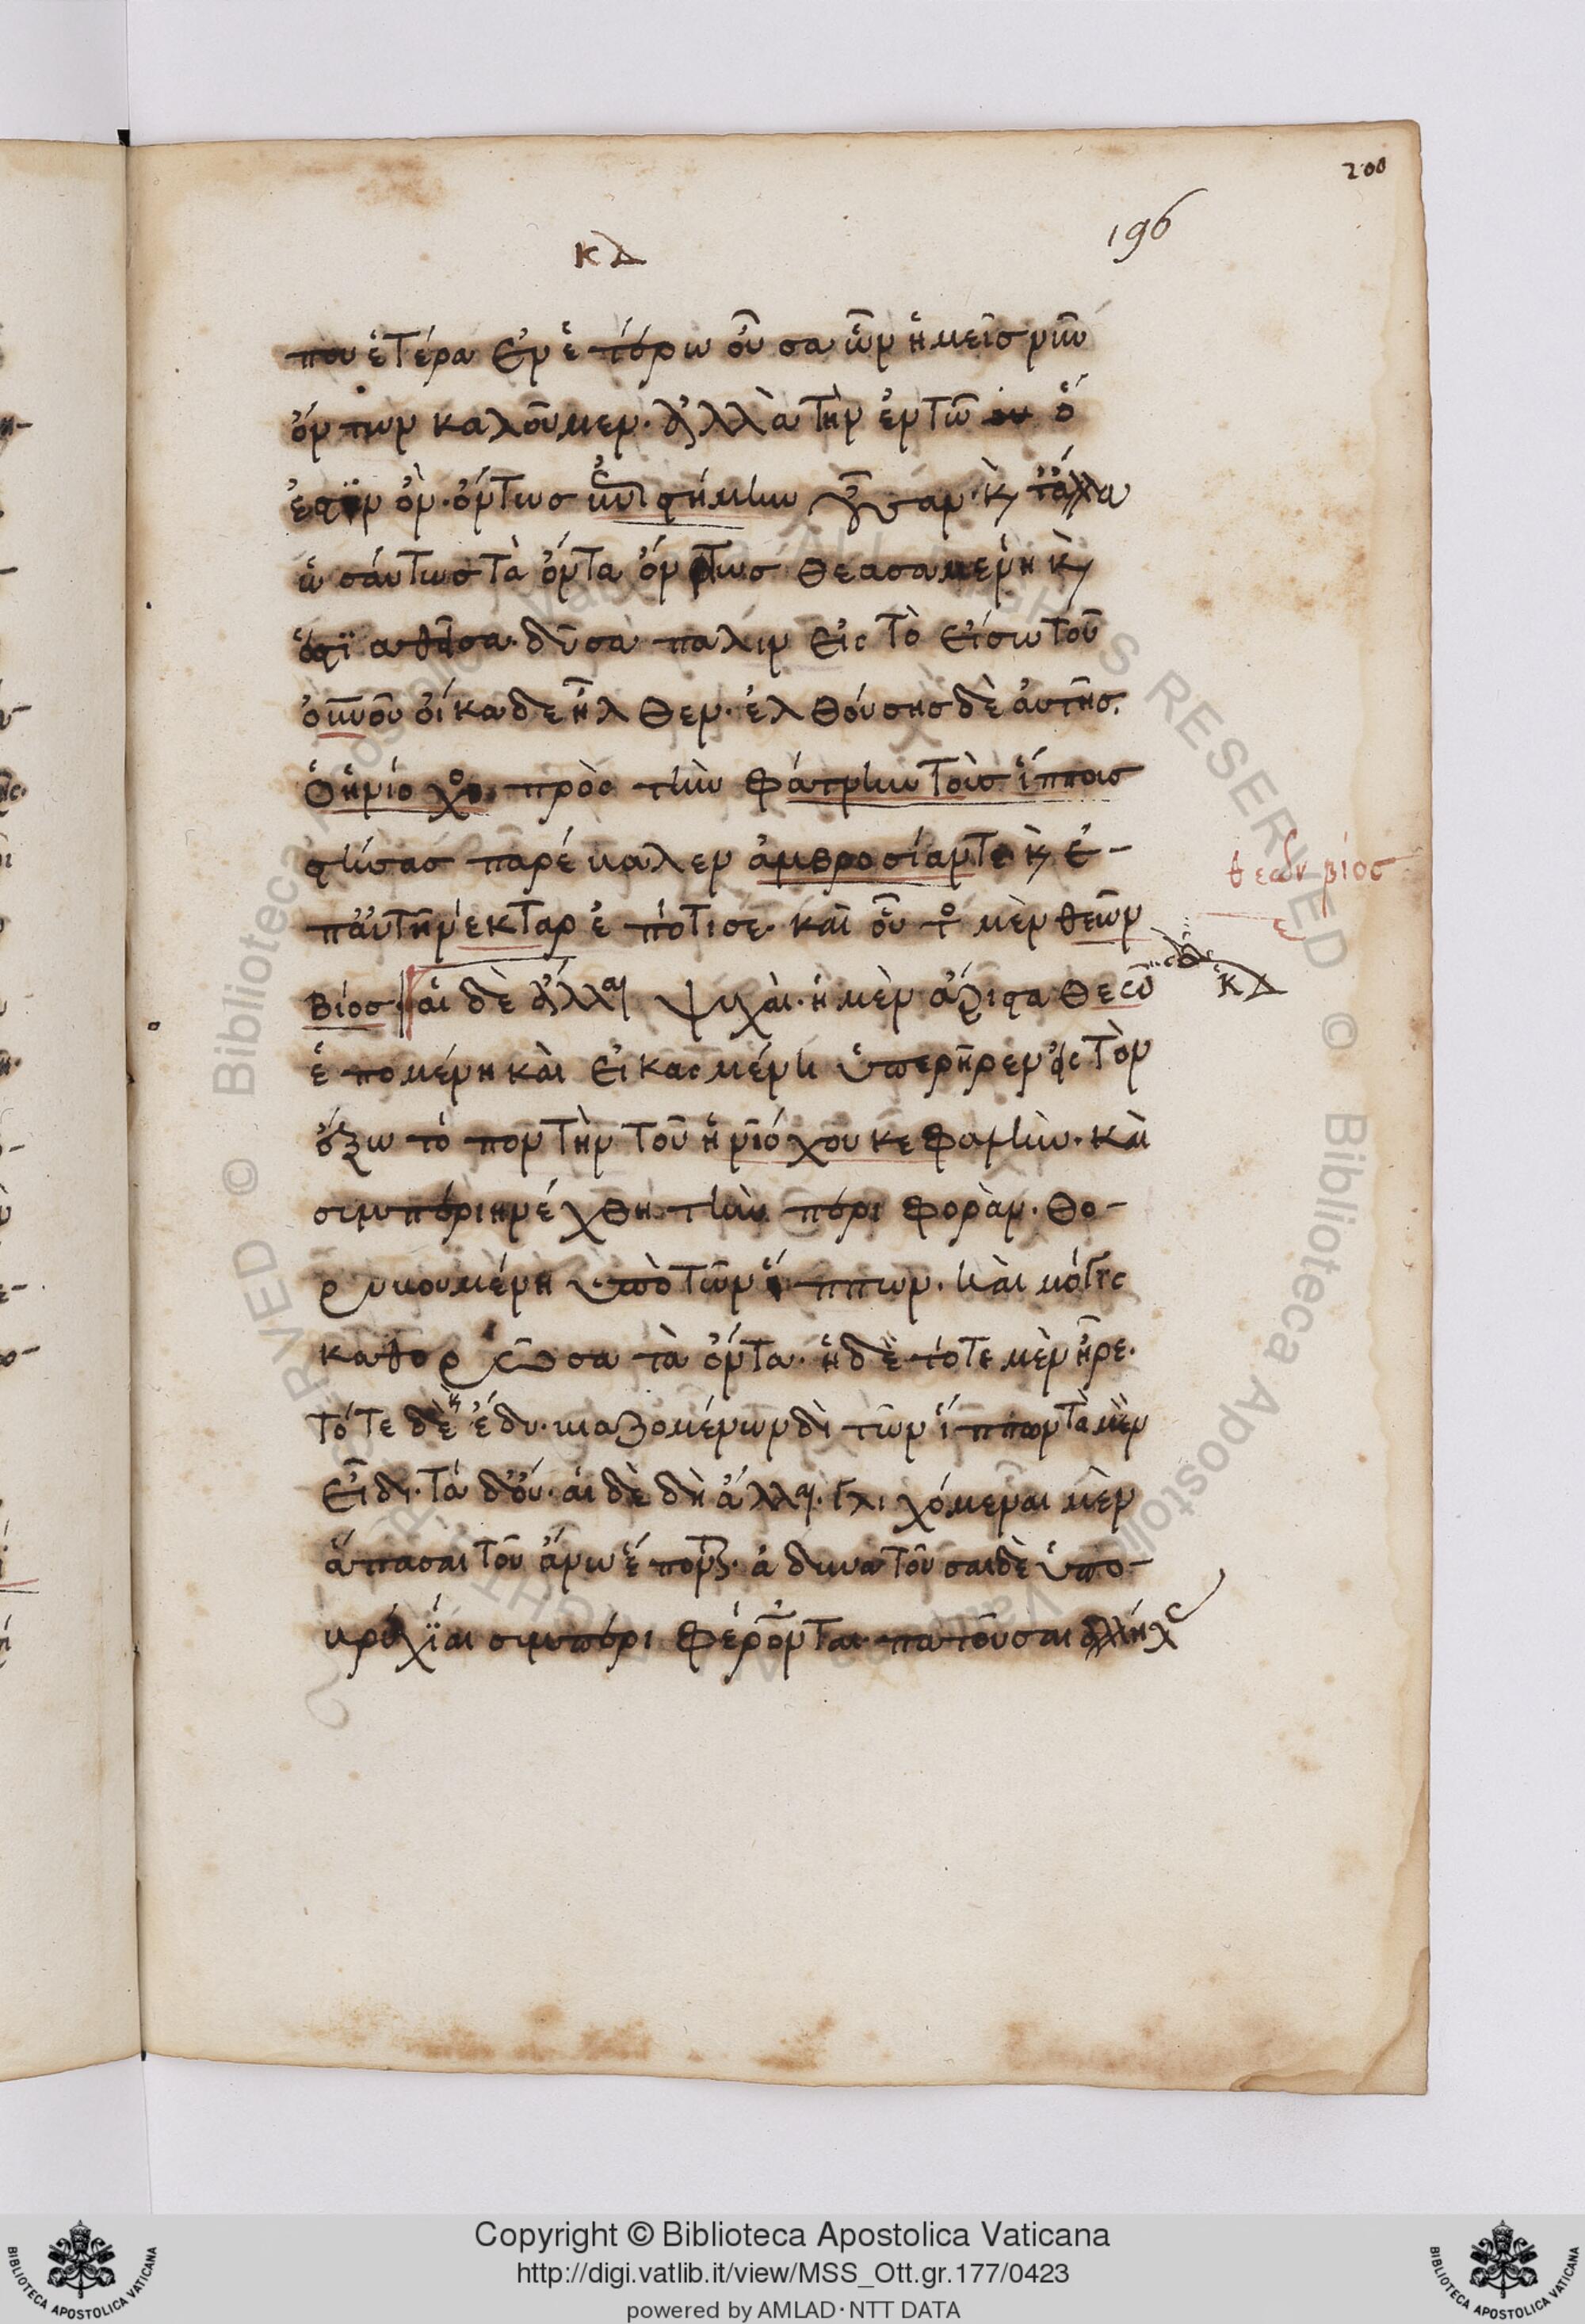 200
196
κδ
που ἑτέρα ἐν ἑτέρω οὖσα ὧν ἡμεῖς νῦν
ὄντων καλοῦμεν· ἀλλὰ τὴν ἐν τῶ ὅ
ἐστιν ὂν ὄντως ἐπιστήμην οὖσαν· καὶ τἄλλα
ὡσάυτως τὰ ὄντα ὄντως θεασαμένη καὶ
ἑστιαθῖσα· δῦσα παλιν εἰς τὸ εἴσω τοῦ
οὐνοῦ οἴκαδε ἦλθεν· ἐλθόυσης δὲ ἀυτῆς.
ὁ ἡνίοχος πρὸς τὴν φάτνην τοὺς ἵππους
στήσας παρέβαλεν ἀμβροσίαν τε καὶ ἐ-
π' ἀυτῆ νέκταρ ἐπότισε· καὶ οὗτος μὲν θεῶν
βίος· ἁι δὲ ἄλλαι ψυχὰι· ἡ μὲν ἄριστα θεῶ
ἑπομένη καὶ εἰκασμένη ὑπερῆρεν εἰς τὸν
ἔξω τόπον τὴν τοῦ ἡνιόχου κεφαλὴν· καὶ
συμπεριηνέχθη τὴν περιφορὰν· θο-
ρυβουμένη ὑπὸ τῶν ἵππων· καὶ μόγις
καθορῶσα τὰ ὄντα· ἡ δὲ τότε μὲν ἦρε·
τότε δὲ ἔδυ· βιαζομένων δὲ τῶν ἵππων τὰ μὲν
εἶδε· τὰ δ' οὔ· ἁι δὲ δὴ ἄλλαι· γλιχόμεναι μὲν
ἅπασαι τοῦ ἄνω ἕπονται· ἀδυνατοῦσαι δὲ ὑπο-
βρύχϊαι συμπεριφέρονται· πατοῦσαι ἀλλήλας
θεῶν βίος
κδ
Copyright © Biblioteca Apostolica Vaticana
http://digi.vatlib.it/view/MSS_Ott.gr.177/0423
powered by AMLAD·NTT DATA